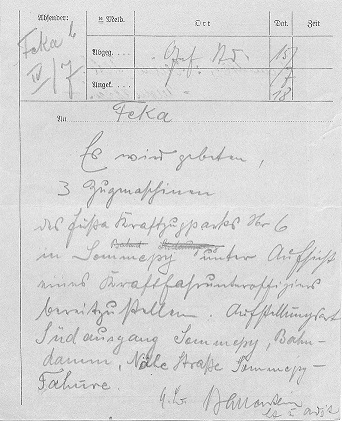 Absender:
n. Meld.
Ort
Dat.
Zeit
Feka 6
IV/7
Abgeg. ....
Gef. Std.
15/
Angek. ....
18
An Feka
Es wird gebeten,
3 Zugmaschinen
des Fußa Kraftzugparks Nr 6
in Sommepy unter Aufsicht
eines Kraftfahrunteroffiziers
bereitzustellen. Aufstellungsort
Südausgang Sommepy, Bahn-
damm, Nähe Straße Sommepy-
Tahure.